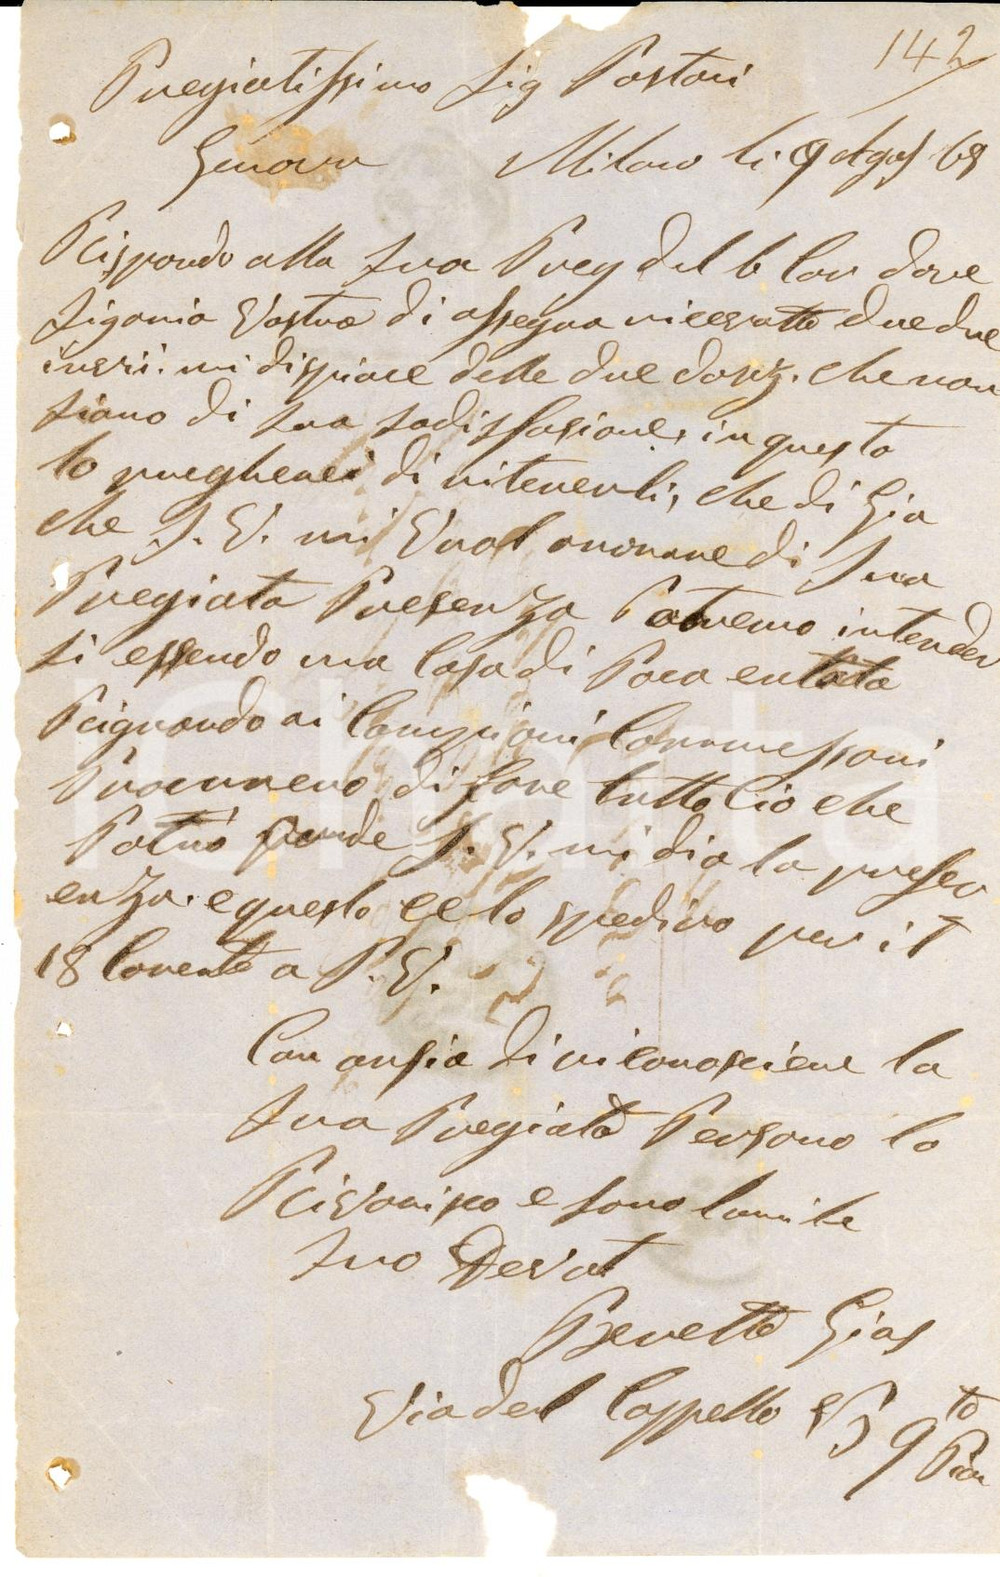 142
Pregiatissimo Sig Postari
Genova Milano li 9 Ags 69
Rispondo alla sua Preg del 6 Cor dove
di assegna due due
mi dispiace delle due che non
siano di sua sodisfasione, in questo
lo pregherei di ritenerli, che di Gia
che S. V. mi Vuol onorare di Sua
Pregiata Presenza Potremo intender
si essendo una Casa di Poca entita
Rignardo ai Campioni Commessoni
Procurrero di fare tutto Cio che
Potrò S. V. mi dia la
enza. e questo ce lo spediro per il
18 Corente a P. V.
Con ansia di riconosciere la
Sua Pregiata Persono la
Riverisco e sono
Suo Devot
Benetto Gios
Via del Cappello N 9
to
Charta